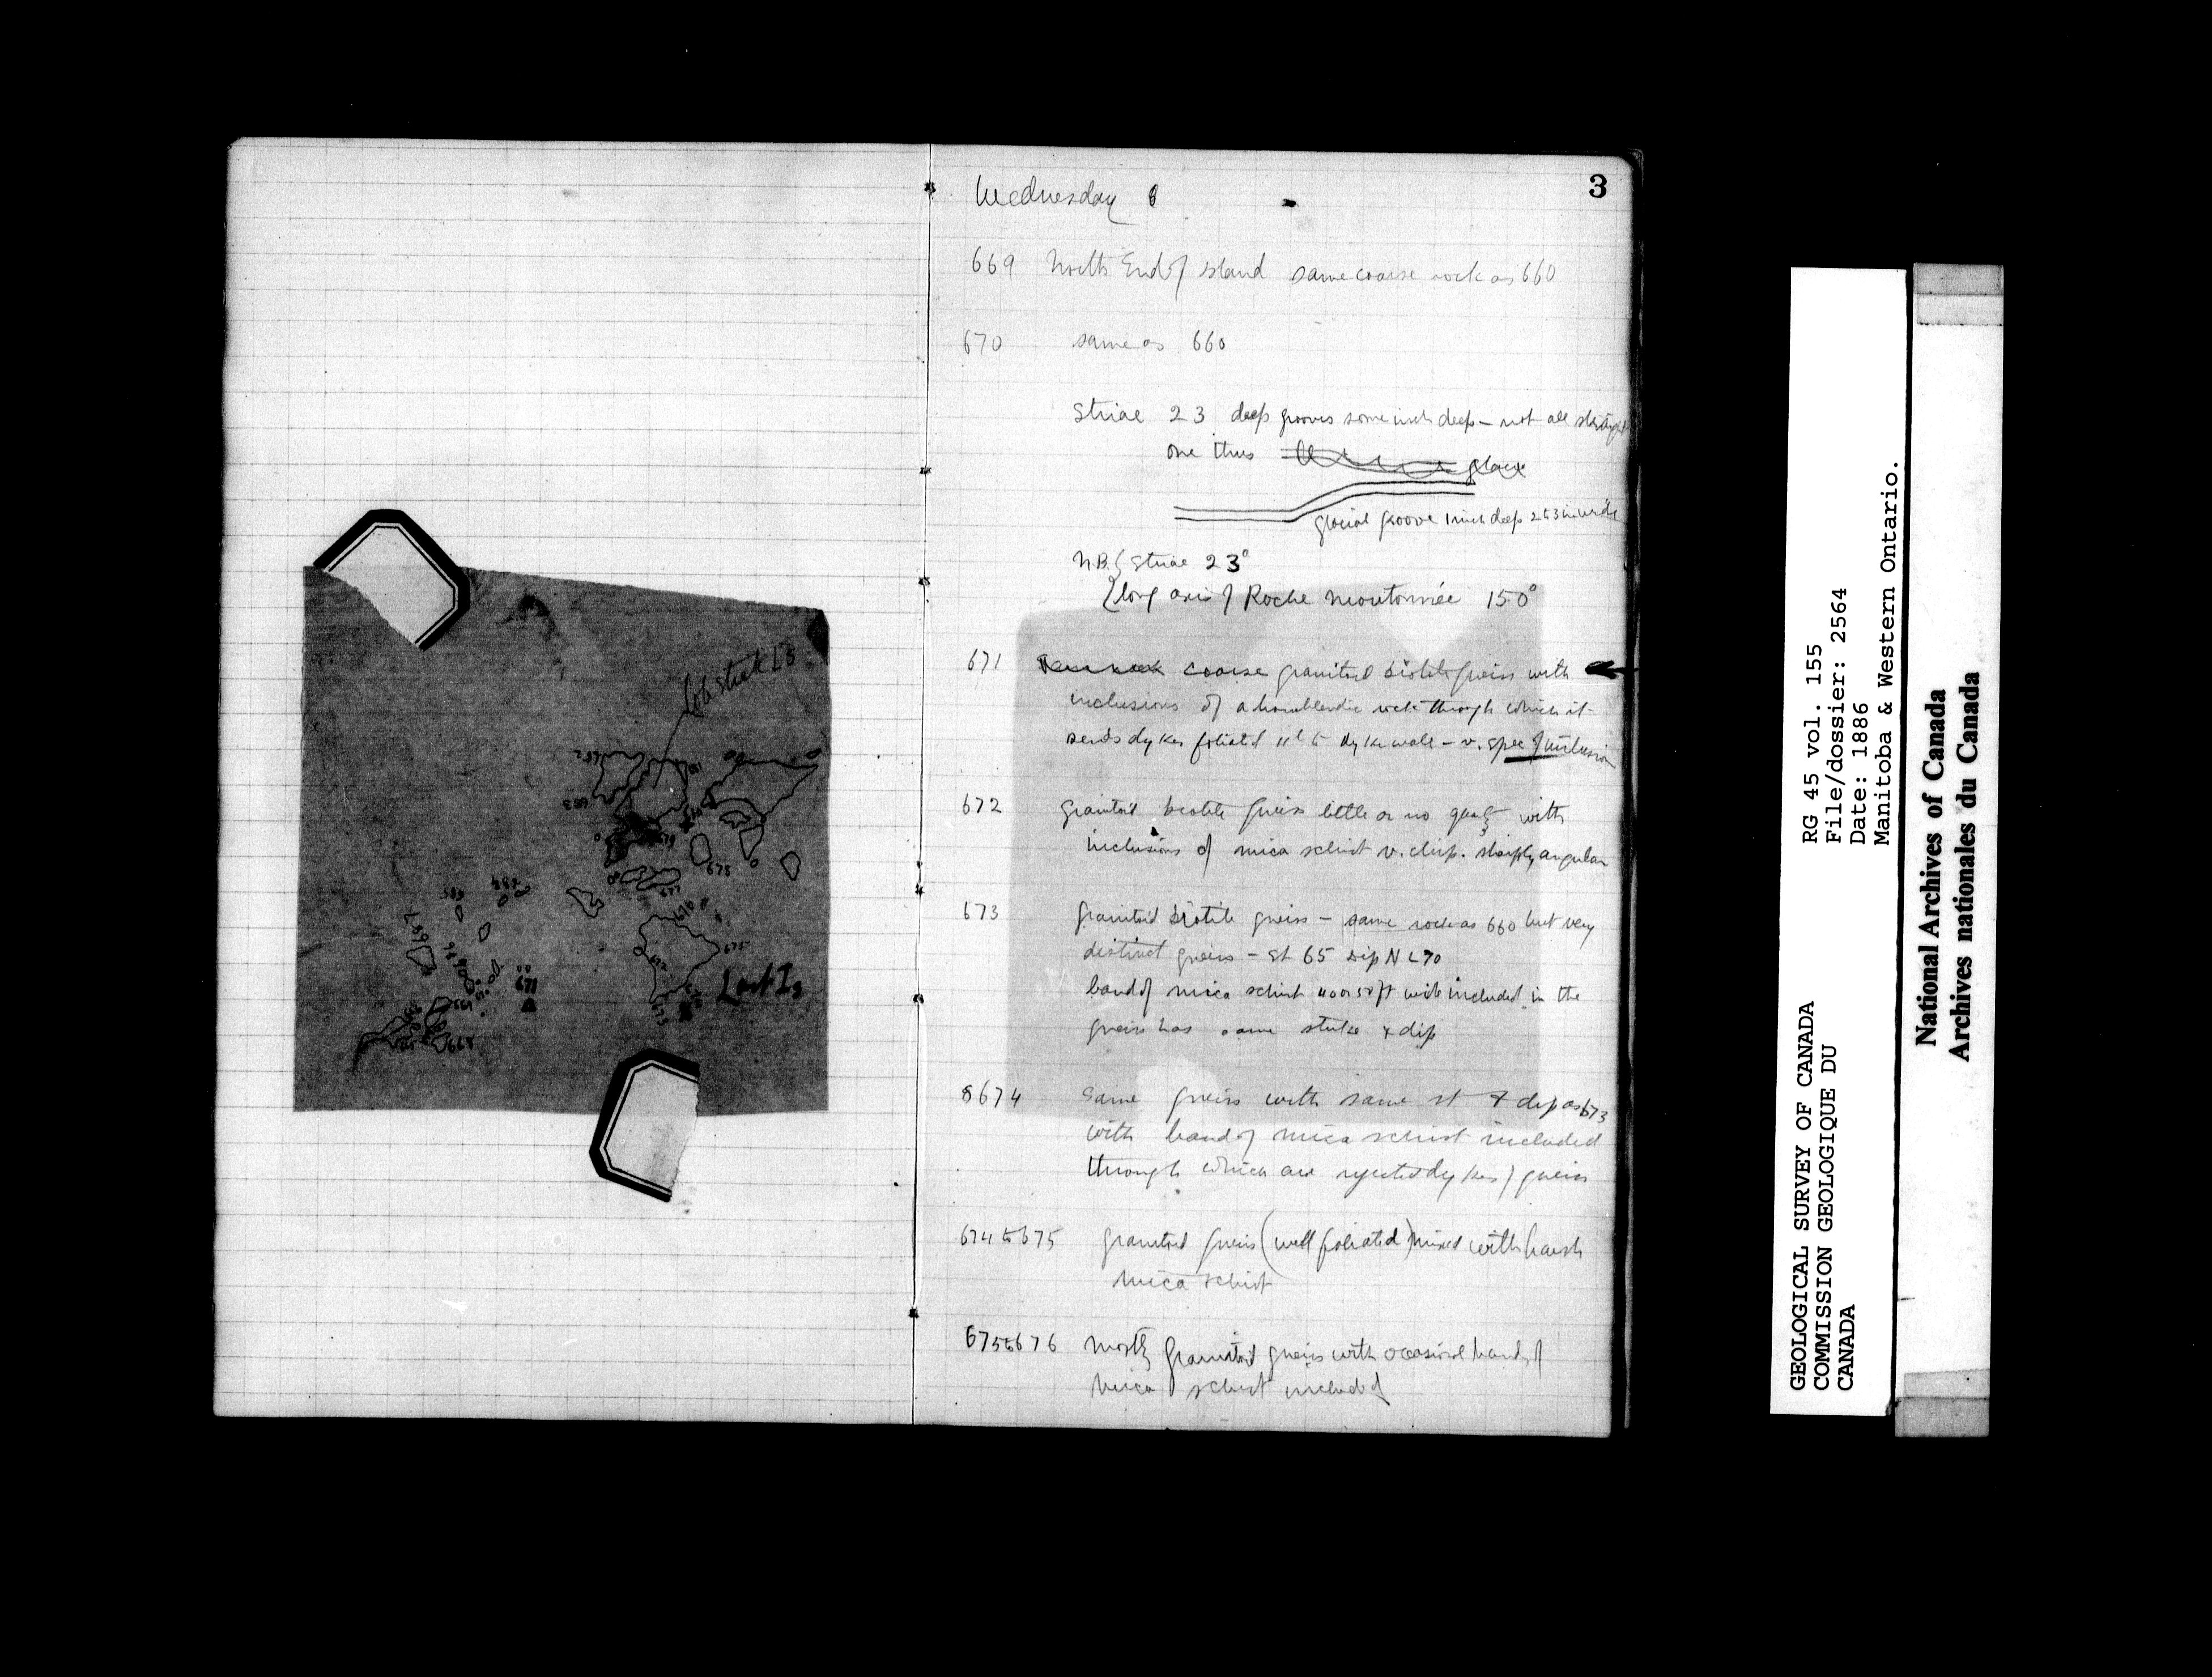 3
Wednesday 6
669 North End of Island same coarse rock as 660
670 same as 660
Striae 23 deep grooves some inch deep - not all straight
one thus
glacial groove 1 inch deep 2 to 3 in wide
N.B. { Striae 23°
{ long axis of Roche moutonnée 150°
671 coarse granitoid biotite gneiss with
inclusions of a hornblendic rock through which it
sends dykes foliated to dyke wall - v. spec of inclusion
672 granitoid biotite gneiss little or no quartz with
inclusions of mica schist v. chip. sharply angular
673 granitoid biotite gneiss - same rock as 660 but very
distinct gneiss - St 65 dip N L 70
band of mica schist 40 or 50 ft wide included in the
gneiss has same strike & dip
674 Same gneiss with same st & dip as 673
with band of mica schist included
through which are injected dykes of gneiss
674 to 675 granitoid gneiss (well foliated) mixed with harsh
mica schist
675 to 676 mostly granitoid gneiss with occasional bands of
mica schist included
Lobstick Is
682
683
678
677
676
675
673
Last Is
671
668
GEOLOGICAL SURVEY OF CANADA
COMMISSION GEOLOGIQUE DU
CANADA
RG 45 vol. 155
File/dossier: 2564
Date: 1886
Manitoba & Western Ontario.
National Archives of Canada
Archives nationales du Canada